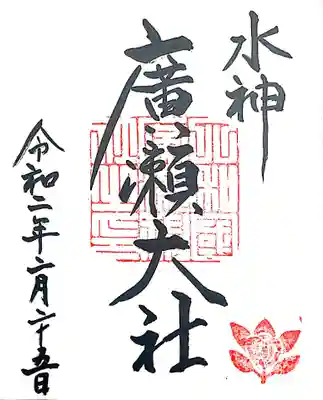 水神
廣瀬大社
令和二年六月二十五日